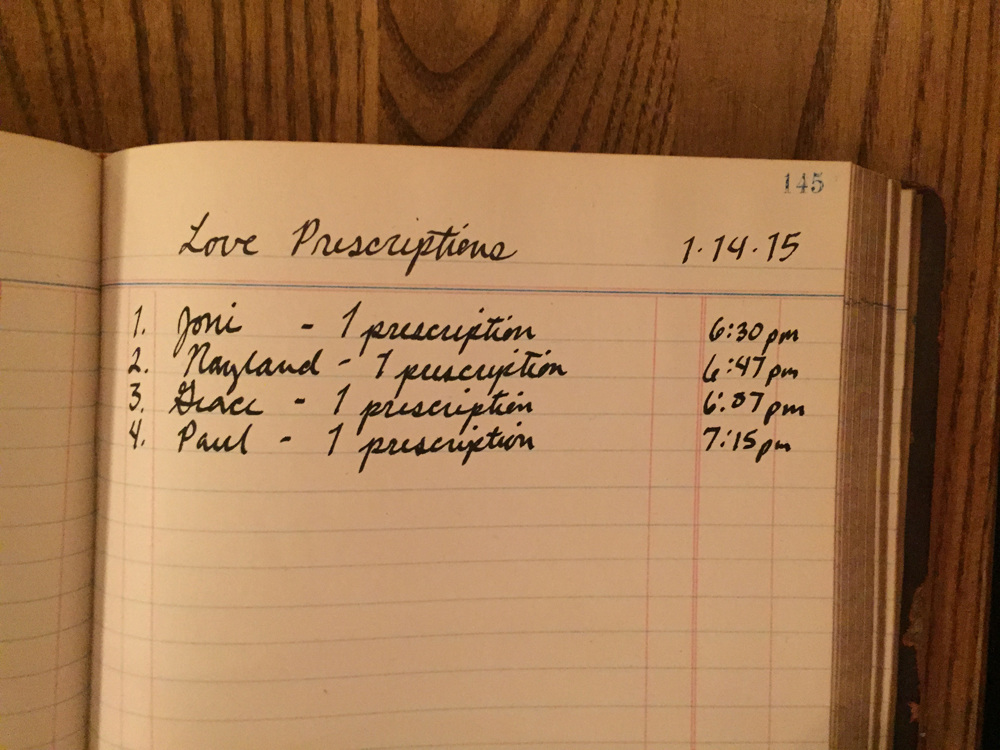 145
Love Prescriptions 1·14·15
1. Joni - 1 prescription 6:30 pm
2. Nayland - 1 prescription 6:47 pm
3. Grace - 1 prescription pm
4. Paul - 1 prescription 7:15 pm